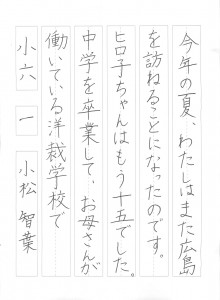 今年の夏、わたしはまた広島
を訪ねることになったのです。
ヒロ子ちゃんはもう十五でした。
中学を卒業して、お母さんが
働いている洋裁学校で
小六 一 小松 智葉